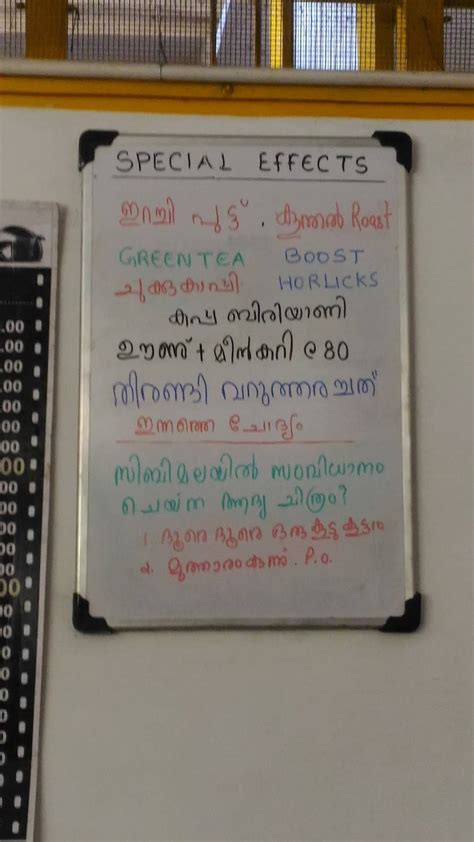 SPECIAL EFFECTS
ഇറച്ചി പുട്ട് . കൂന്തൽ Roast
GREEN TEA BOOST
ചുക്കുകാപ്പി HORLICKS
കപ്പ ബിരിയാണി
ഊണ് + മീൻകറി @ 80
തിരണ്ടി വറുത്തരച്ചത്
ഇന്നത്തെ ചോദ്യം
സിബിമലയിൽ സംവിധാനം
ചെയ്ത ആദ്യ ചിത്രം?
1. ദൂരെ ദൂരെ ഒരു കൂടു കൂട്ടാം
2. മുത്താരംകുന്ന് . P.O.
.00
.00
.00
.00
.00
.00